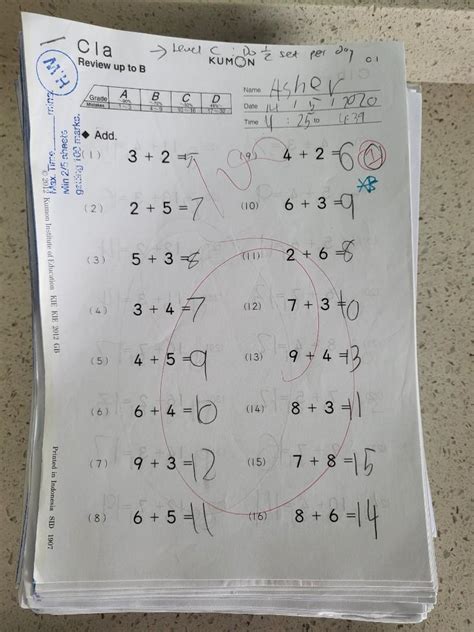 C1a → Level C : Do ½ set per day
Review up to B KUMON C 1
M.H
Max. Time mins
Min 2/5 sheets
getting 100 marks.
Grade A B C D
Name Asher
Date 14 / 5 / 2020
Time 4 : 25 to 4:39
◆ Add.
(1) 3 + 2 = 5
(2) 2 + 5 = 7
(3) 5 + 3 = 8
(4) 3 + 4 = 7
(5) 4 + 5 = 9
(6) 6 + 4 = 10
(7) 9 + 3 = 12
(8) 6 + 5 = 11
(9) 4 + 2 = 6
(10) 6 + 3 = 9
(11) 2 + 6 = 8
(12) 7 + 3 = 10
(13) 9 + 4 = 13
(14) 8 + 3 = 11
(15) 7 + 8 = 15
(16) 8 + 6 = 14
© 2012 Kumon Institute of Education KIE KIE 2012 GB
Printed in Indonesia SID 1907